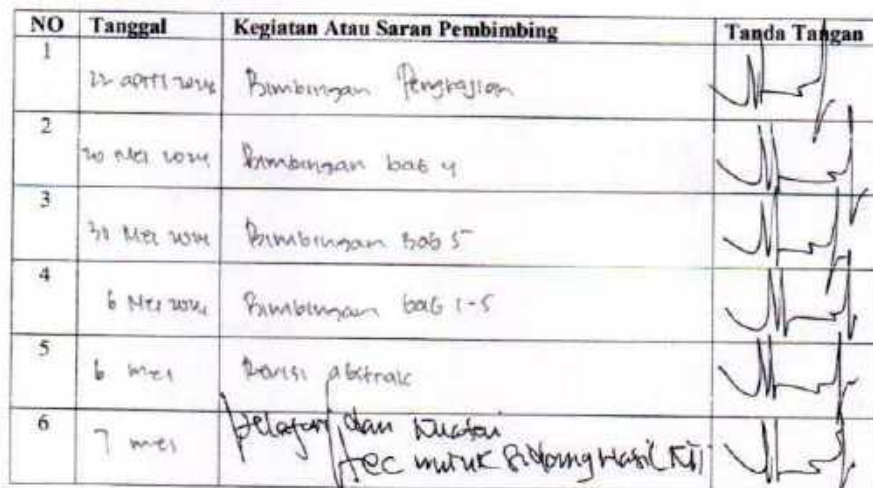 NO Tanggal Kegiatan Atau Saran Pembimbing Tanda Tangan
1
22 april 2024 Bimbingan Pengkajian
2
20 Mei 2024 Bimbingan bab 4
3
30 Mei 2024 Bimbingan Bab 5
4
6 Mei 2024 Bimbingan bab 1-5
5
6 mei Revisi abstrak
6
7 mei pelajari dan kuasai
Acc untuk Sidang Hasil KTI